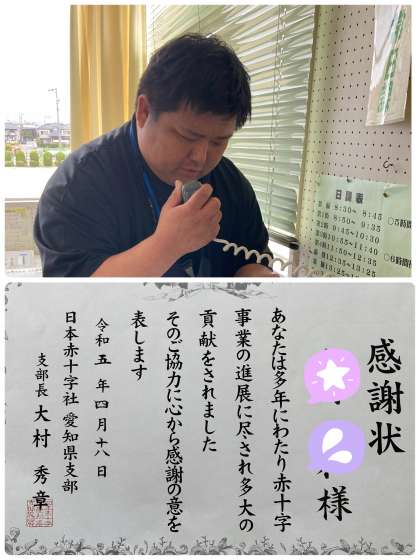 日課表
8:30~ 8:45
8:50~ 9:35
9:45~10:30
10:55~11:40
11:50~12:35
12:35~13:15
○5時間
○6時間
感謝状
様
あなたは多年にわたり赤十字
事業の進展に尽され多大の
貢献をされました
そのご協力に心から感謝の意を
表します
令和五年四月十八日
日本赤十字社 愛知県支部
支部長 大村秀章